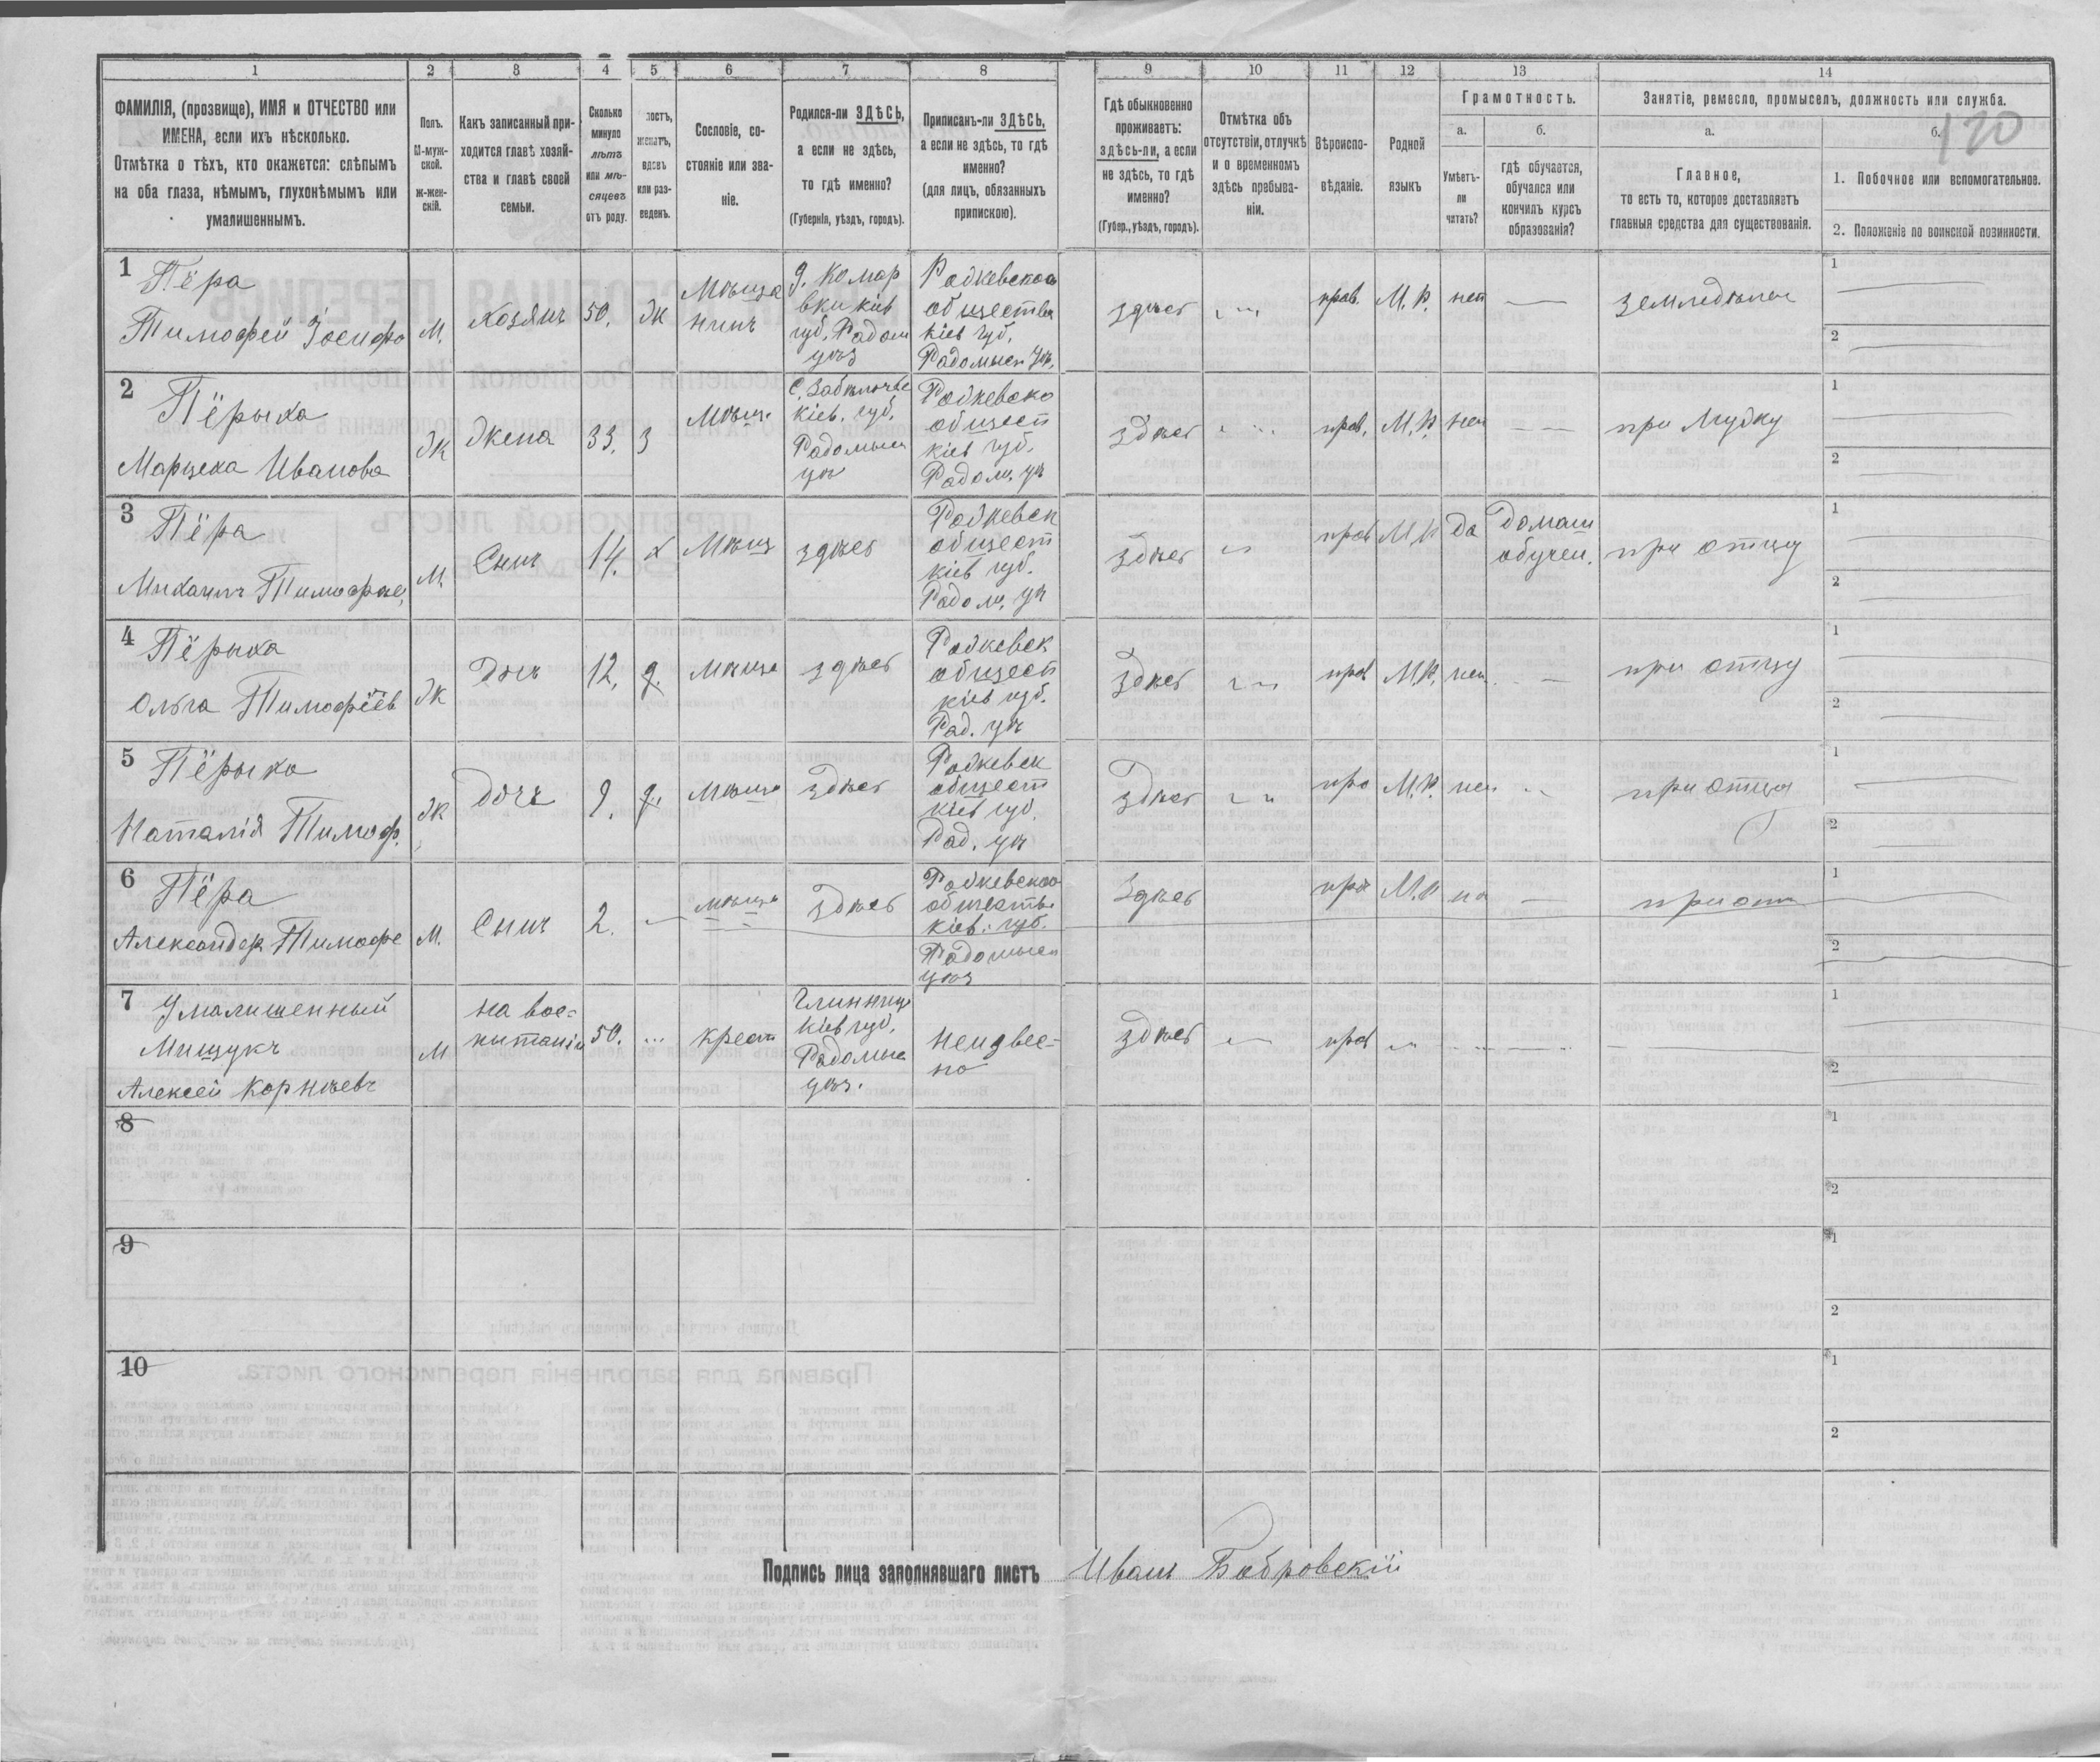 1 2 3 4 5 6 7 8 9 10 11 12 13 14
ФАМИЛІЯ, (прозвище), ИМЯ и ОТЧЕСТВО или
ИМЕНА, если ихъ нѣсколько.
Отмѣтка о тѣхъ, кто окажется: слѣпымъ
на оба глаза, нѣмымъ, глухонѣмымъ или
умалишеннымъ.
Полъ.
М-муж-
ской.
ж-жен-
скій.
Какъ записанный при-
ходится главѣ хозяй-
ства и главѣ своей
семьи.
Сколько
минуло
лѣтъ
или мѣ-
сяцевъ
отъ роду.
лостъ,
женатъ,
вдовъ
или раз-
веденъ.
Сословіе, со-
стояніе или зва-
ніе.
Родился-ли ЗДѢСЬ,
а если не здѣсь,
то гдѣ именно?
(Губернія, уѣздъ, городъ).
Приписанъ-ли ЗДѢСЬ,
а если не здѣсь, то гдѣ
именно?
(для лицъ, обязанныхъ
припискою).
Гдѣ обыкновенно
проживаетъ:
здѣсь-ли, а если
не здѣсь, то гдѣ
именно?
(Губер., уѣздъ, городъ).
Отмѣтка объ
отсутствіи, отлучкѣ
и о временномъ
здѣсь пребыва-
ніи.
Вѣроиспо-
вѣданіе.
Родной
языкъ
Грамотность.
а.
Умѣетъ-
ли
читать?
б.
гдѣ обучается,
обучался или
кончилъ курсъ
образованія?
Занятіе, ремесло, промыселъ, должность или служба.
а.
Главное,
то есть то, которое доставляетъ
главныя средства для существованія.
б.
120
1. Побочное или вспомогательное.
2. Положеніе по воинской повинности.
1
Пёра
Тимофей Іосифо
М.
хозяинъ
50.
ж
Мѣща
нинъ
д. Комар
вки кіев
губ. Радом
уѣз
Радкевскаго
общества
кіев губ.
Радомысл уѣ.
здѣсь
прав.
М. Р.
нет
земледѣлеи
1
2
2
Пёрыха
Марцеха Иванова
Ж
Жена
33.
З
Мѣще
С. Забѣлочье
кіев. губ.
Радомысл
уѣ
Радкевско
общест
кіев губ.
Радом. уѣ
здѣсь
прав.
М. Р.
нет
при Мужу
1
2
3
Пёра
Михаилъ Тимофѣе,
М.
Сынъ
14.
х
Мѣщ
здѣсь
Радкевск
общест
кіев губ.
Радом. уѣ
здѣсь
прав
М Р
да
домаш
обучен.
при отцу
1
2
4
Пёрыха
Ольга Тимофѣев
Ж
Дочь
12.
д.
мѣще
здѣсь
Радкевск
общест
кіев губ.
Рад. уѣ
здѣсь
прав
М.Р.
нет
при отцу
1
2
5
Пёрыха
Наталія Тимоф.
Ж
дочь
9.
д.
мѣще
здѣсь
Радкевск
общест
кіев губ.
Рад. уѣ
здѣсь
пра
М.Р.
нет
при отцу
1
2
6
Пёра
Александр Тимофе
М.
Сынъ
2.
мѣще
здѣсь
Радкевскаго
обществ
кіев. губ.
Радомысл
уѣз
Здѣсь
пра
М.Р
при от
1
2
7
Умалишенный
Мищукъ
Алексей Корнѣевъ
М
на вос-
питаніи
50.
крест
Глинница
кіев губ.
Радомысл
уѣз.
неизвес-
но
здѣсь
прав
1
2
8
1
2
9
1
2
10
1
2
Подпись лица заполнявшаго листъ Иванъ Бобровскій